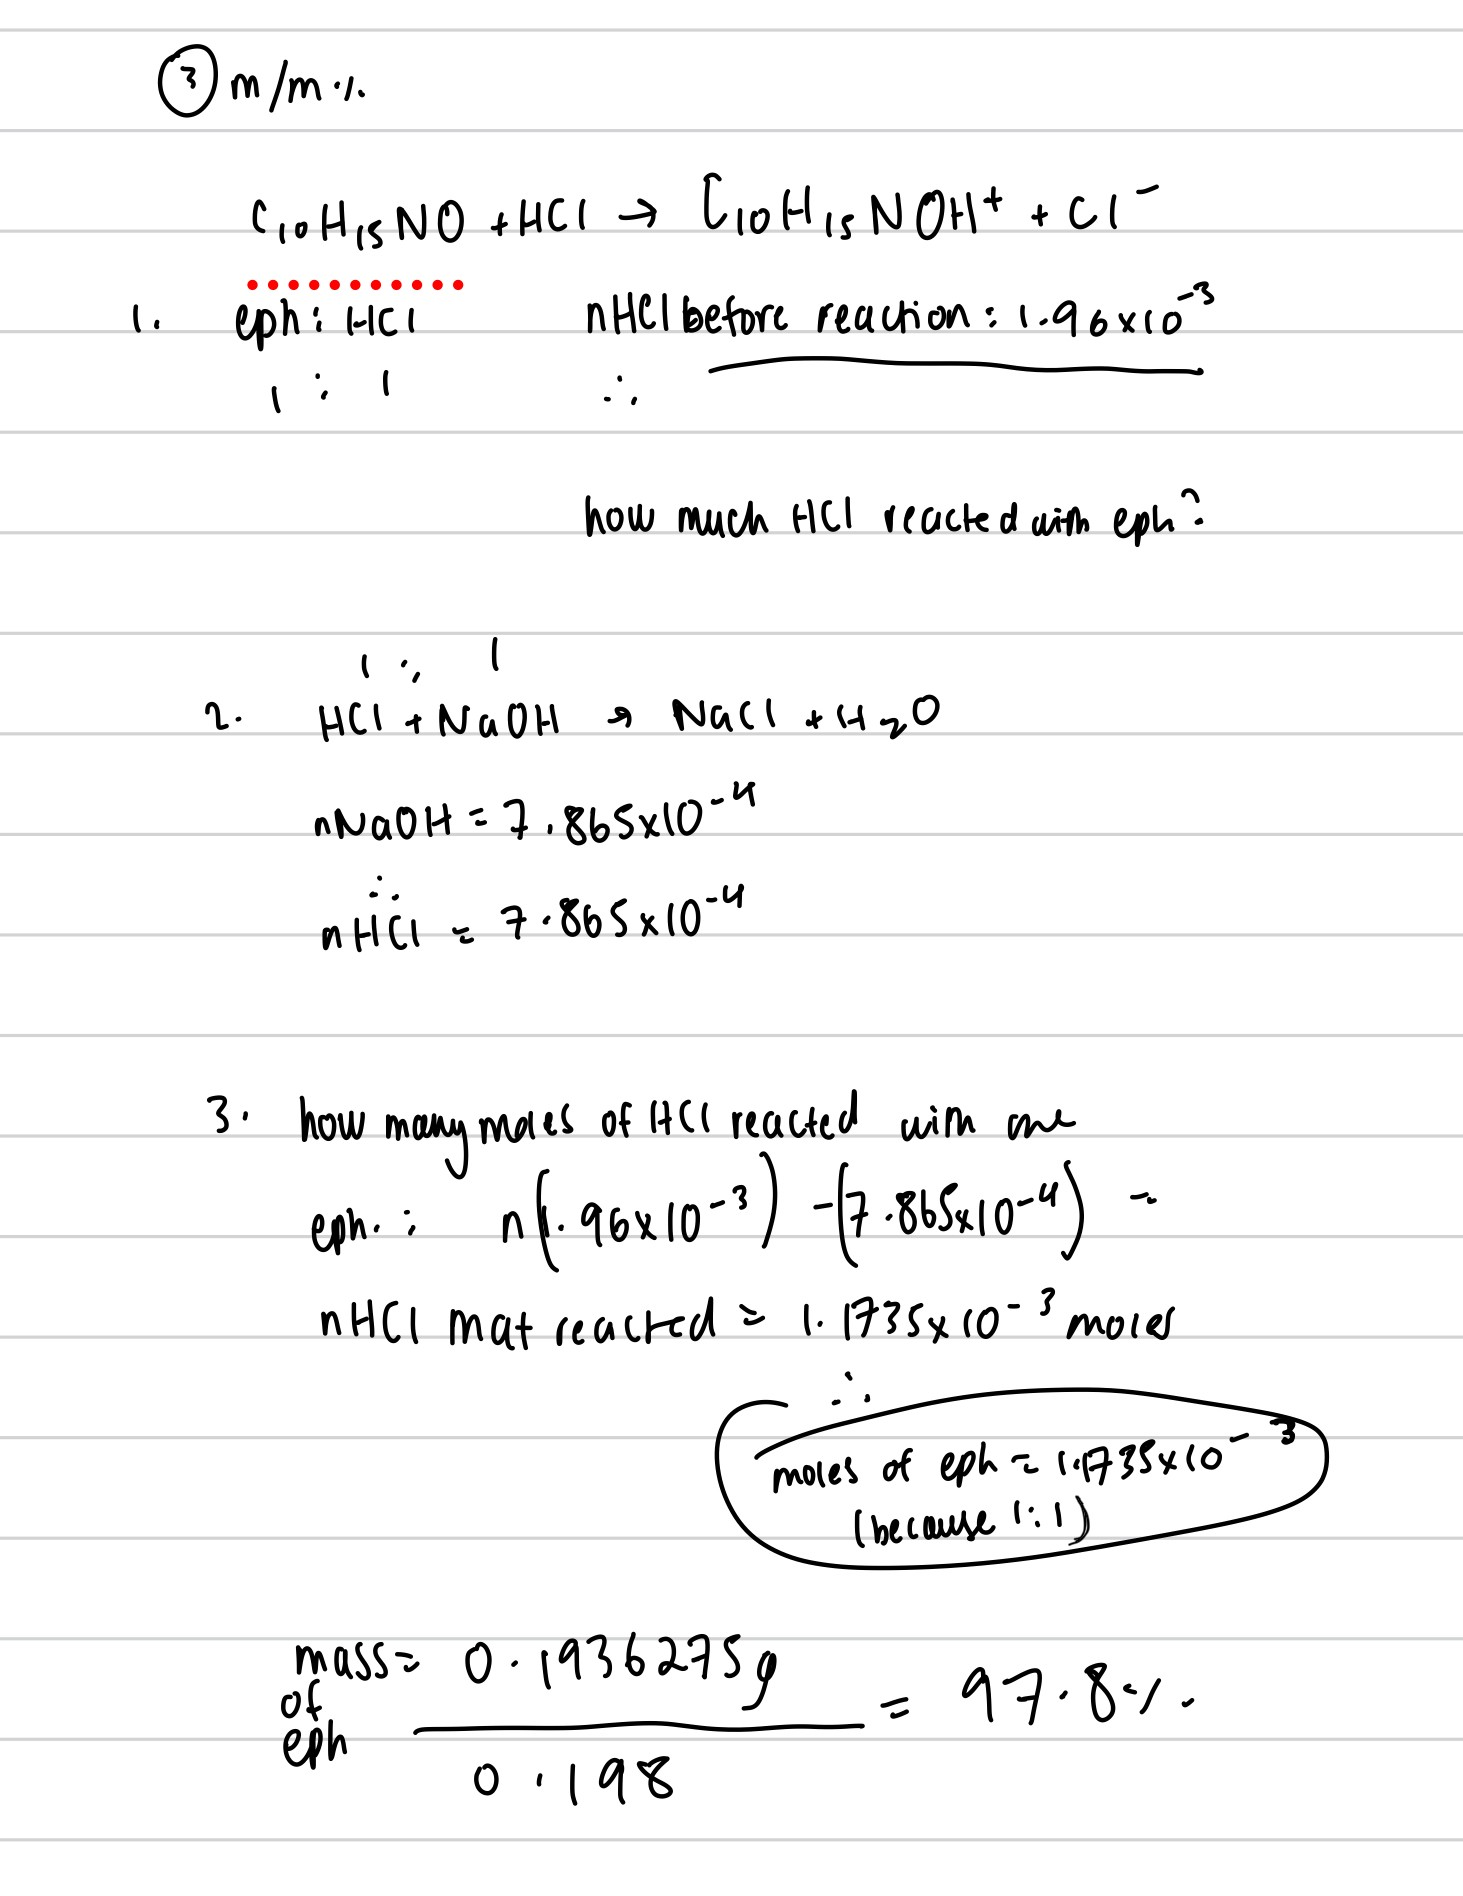 ③ m/m %
C₁₀H₁₅NO + HCl → C₁₀H₁₅NOH⁺ + Cl⁻
1. eph : HCl nHCl before reaction : 1.96x10⁻³
1 : 1 ∴
how much HCl reacted with eph?
1 : 1
2. HCl + NaOH → NaCl + H₂O
nNaOH = 7.865x10⁻⁴
∴
nHCl = 7.865x10⁻⁴
3. how many moles of HCl reacted with one
eph. : n(1.96x10⁻³) - (7.865x10⁻⁴) =
nHCl that reacted = 1.1735x10⁻³ moles
∴
moles of eph = 1.1735x10⁻³
(because 1:1)
mass of eph = 0.1936275g / 0.198 = 97.8%.